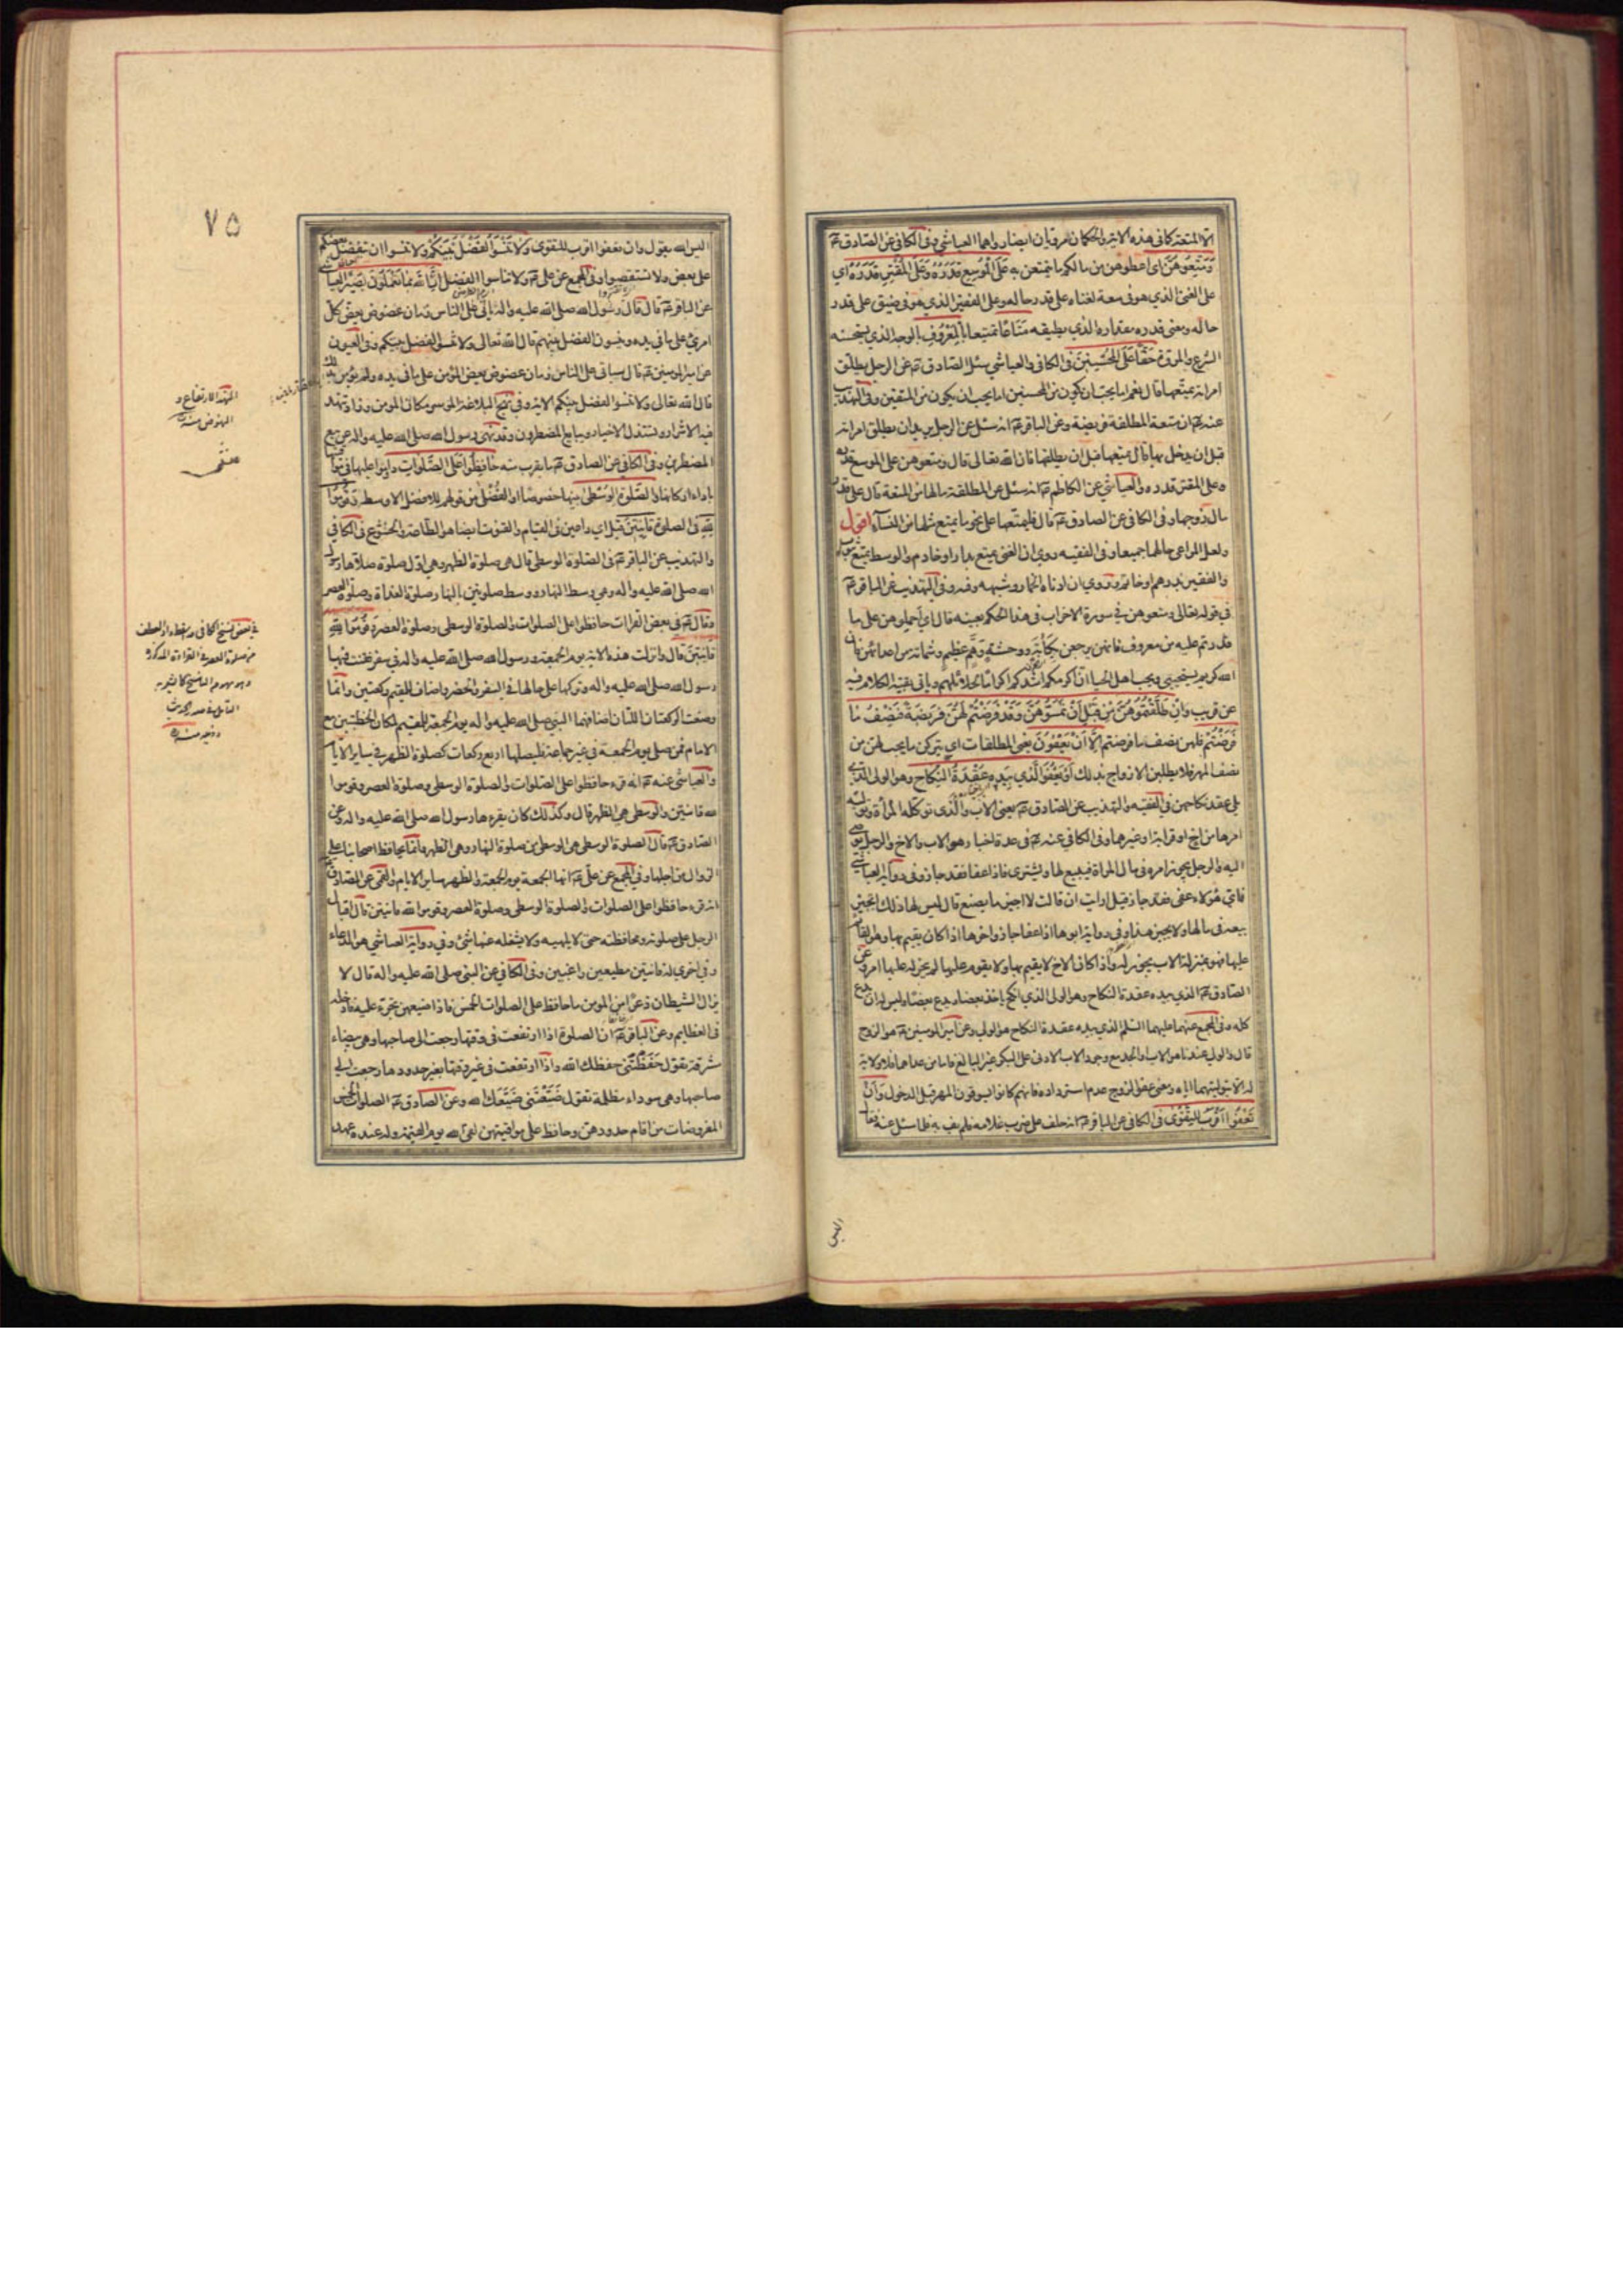 الا المتعة كما فى هذه الاية والحكمان مرويان ايضا رواهما العياشي وفى الكافى عن الصادق ع
وَمَتِّعُوهُنَّ اى اعطوهن من مالكم ما يتمتعن به عَلَى الْمُوسِعِ قَدَرُهُ وَعَلَى الْمُقْتِرِ قَدَرُهُ اي
على الغنى الذي هو فى سعة لغناه على قدر حاله وعلى الفقير الذي هو فى ضيق على قدر
حاله ومعنى قدره مقداره الذي يطيقه مَتَاعًا تمتيعا بِالْمَعْرُوفِ بالوجه الذي يستحسنه
الشرع والمروة حَقًّا عَلَى الْمُحْسِنِينَ فى الكافى والعياشي سئل الصادق ع عن الرجل يطلق
امراته يمتعها قال نعم اما يحب ان يكون من المحسنين اما يحب ان يكون من المتقين وفى التهذيب
عنه ع ان متعة المطلقة فريضة وعن الباقر ع انه سئل عن الرجل يريد ان يطلق امراته
قبل ان يدخل بها قال يمتعها قبل ان يطلقها فان الله تعالى قال ومتعوهن على الموسع قدره
وعلى المقتر قدره والعياشي عن الكاظم ع انه سئل عن المطلقة ما لها من المتعة قال على قدر
مال زوجها وفى الكافى عن الصادق ع قال فليمتعها على نحو ما يمتع مثلها من النساء اقول
ولعل المراعى حالهما جميعا وفى الفقيه روي ان الغنى يمتع بدار او خادم والوسط يمتع بثوب
والفقير بدرهم او خاتم وروي ان ادناه الخمار وشبهه وفى التهذيب عن الباقر ع
فى قوله تعالى ومتعوهن فى سورة الاحزاب فى هذا الحكم بعينه قال اي احملوهن على ما
قدرتم عليه من معروف فانهن يرجعن بكابة ووحشة وهم عظيم وشماتة من اعدائهن فان
الله كريم يستحيى ويحب اهل الحيا ان اكرمكم اشدكم اكراما لحلائلهم وياتى بقية الكلام فيه
عن قريب وَاِنْ طَلَّقْتُمُوهُنَّ مِنْ قَبْلِ اَنْ تَمَسُّوهُنَّ وَقَدْ فَرَضْتُمْ لَهُنَّ فَرِيضَةً فَنِصْفُ مَا
فَرَضْتُمْ فلهن نصف ما فرضتم اِلَّا اَنْ يَعْفُونَ يعنى المطلقات اي يتركن ما يجب لهن من
نصف المهر فلا يطلبن الازواج بذلك اَوْ يَعْفُوَا الَّذِي بِيَدِهِ عُقْدَةُ النِّكَاحِ وهو الولى الذي
يلي عقد نكاحهن فى الفقيه والتهذيب عن الصادق ع يعنى الاب والذى توكله المرأة وتوليه
امرها من اخ او قرابة او غيرهما وفى الكافى عنه ع فى عدة اخبار هو الاب والاخ والرجل يوصى
اليه والرجل يجوز امره فى مال المراة فيبيع لها ويشترى فاذا عفا فقد جاز وفى رواية العياشي
فاي هؤلاء عفى فقد جاز قيل ارايت ان قالت لا اجيز ما يصنع قال ليس لها ذلك اتجيز
بيعه فى مالها ولا يجيز هذا وفى رواية ابوها اذا عفا جاز واخوها اذا كان يقيم بها وهو القائم
عليها فهو بمنزلة الاب يجوز له واذا كان الاخ لا يقيم بها ولا يقوم عليها لم يجز له عليها امر وعن
الصادق ع الذي بيده عقدة النكاح وهو الولى الذي انكح ياخذ بعضا ويدع بعضا وليس له ان يدع
كله وفى المجمع عنهما عليهما السلم الذي بيده عقدة النكاح هو الولي وعن امير المومنين ع هو الزوج
قال والولي عندنا هو الاب والجد مع وجود الاب الادنى على البكر غير البالغ فاما من عداهما فلا ولاية
له الا بتوليتهما اياه ومعنى عفو الزوج عدم استرداده فانهم كانوا يسوقون المهر قبل الدخول وَاَنْ
تَعْفُوا اَقْرَبُ لِلتَّقْوى فى الكافى عن الباقر ع انه حلف على ضرب غلامه فلم يف به فلما سئل عنه فقال
اليس
٧٥
اليس الله يقول وان تعفوا اقرب للتقوى وَلَا تَنْسَوُا الْفَضْلَ بَيْنَكُمْ ولا تنسوا ان تفضل بعضكم
على بعض ولا تستقصوا وفى المجمع عن على ع ولا تناسوا الفضل اِنَّ اللَّهَ بِمَا تَعْمَلُونَ بَصِيرٌ العياشي
عن الباقر ع قال قال رسول الله صلى الله عليه واله ياتى على الناس زمان عضوض يعض كل
امرئ على ما فى يده وينسون الفضل بينهم قال الله تعالى ولا تنسوا الفضل بينكم وفى العيون
عن امير المومنين ع قال سياتى على الناس زمان عضوض يعض المؤمن على ما فى يده ولم يؤمر بذلك
قال الله تعالى ولا تنسوا الفضل بينكم الاية وفى نهج البلاغة الموسر مكان المومن وزاد تنهد
فيه الاشرار وتستذل الاخيار ويبايع المضطرون وقد نهى رسول الله صلى الله عليه واله عن بيع
المضطرين وفى الكافى عن الصادق ع ما يقرب منه حَافِظُوا عَلَى الصَّلَوَاتِ داوموا عليها فى مواقيتها
باداء اركانها وَالصَّلوةِ الْوُسْطى بينها خصوصا او الفضلى من قولهم للافضل الاوسط وَقُومُوا
لِلّهِ فى الصلوة قَانِتِينَ قيل اي داعين فى القيام والقنوت ايضا هو الطاعة والخشوع فى الكافى
والتهذيب عن الباقر ع فى الصلوة الوسطى قال هى صلوة الظهر وهى اول صلوة صلاها رسول
الله صلى الله عليه واله وهى وسط النهار ووسط صلوتين بالنهار صلوة الغداة وصلوة العصر
وقال ع فى بعض القراات حافظوا على الصلوات والصلوة الوسطى وصلوة العصر وَقُومُوا لِلّهِ
قَانِتِينَ قال وانزلت هذه الاية يوم الجمعة ورسول الله صلى الله عليه واله فى سفر فقنت فيها
رسول الله صلى الله عليه واله وتركها على حالها فى السفر والحضر واضاف للمقيم ركعتين وانما
وضعت الركعتان اللتان اضافهما النبى صلى الله عليه واله يوم الجمعة للمقيم لمكان الخطبتين مع
الامام فمن صلى يوم الجمعة فى غير جماعة فليصلها اربع ركعات كصلوة الظهر فى ساير الايام
والعياشى عنه ع انه قرء حافظوا على الصلوات والصلوة الوسطى وصلوة العصر وقوموا
لله قانتين والوسطى هى الظهر قال وكذلك كان يقرءها رسول الله صلى الله عليه واله وعن
الصادق ع قال الصلوة الوسطى هى الوسطى من صلوة النهار وهى الظهر وانما يحافظ اصحابنا على
الزوال من اجلها وفى المجمع عن على ع انها الجمعة يوم الجمعة والظهر ساير الايام والقمى عن الصادق ع
انه قرء حافظوا على الصلوات والصلوة الوسطى وصلوة العصر وقوموا لله قانتين قال اقبال
الرجل على صلوته ومحافظته حتى لا يلهيه ولا يشغله عنها شئ وفى رواية العياشي هو الدعاء
وفى اخرى له قانتين مطيعين راغبين وفى الكافى عن النبى صلى الله عليه واله قال لا
يزال الشيطان ذعرا من المومن ما حافظ على الصلوات الخمس فاذا ضيعهن تجرء عليه فادخله
فى العظايم وعن الباقر ع ان الصلوة اذا ارتفعت فى وقتها رجعت الى صاحبها وهى بيضاء
مشرقة تقول حفظتنى حفظك الله واذا ارتفعت فى غير وقتها بغير حدودها رجعت الى
صاحبها وهى سوداء مظلمة تقول ضيعتنى ضيعك الله وعن الصادق ع الصلوات الخمس
المفروضات من اقام حدودهن وحافظ على مواقيتهن لقى الله يوم القيمة وله عنده عهد
النهد الارتفاع و
النهوض منه
فى بعض نسخ الكافى باسقاط واو العطف
من صلوة العصر فى القراءة المذكورة